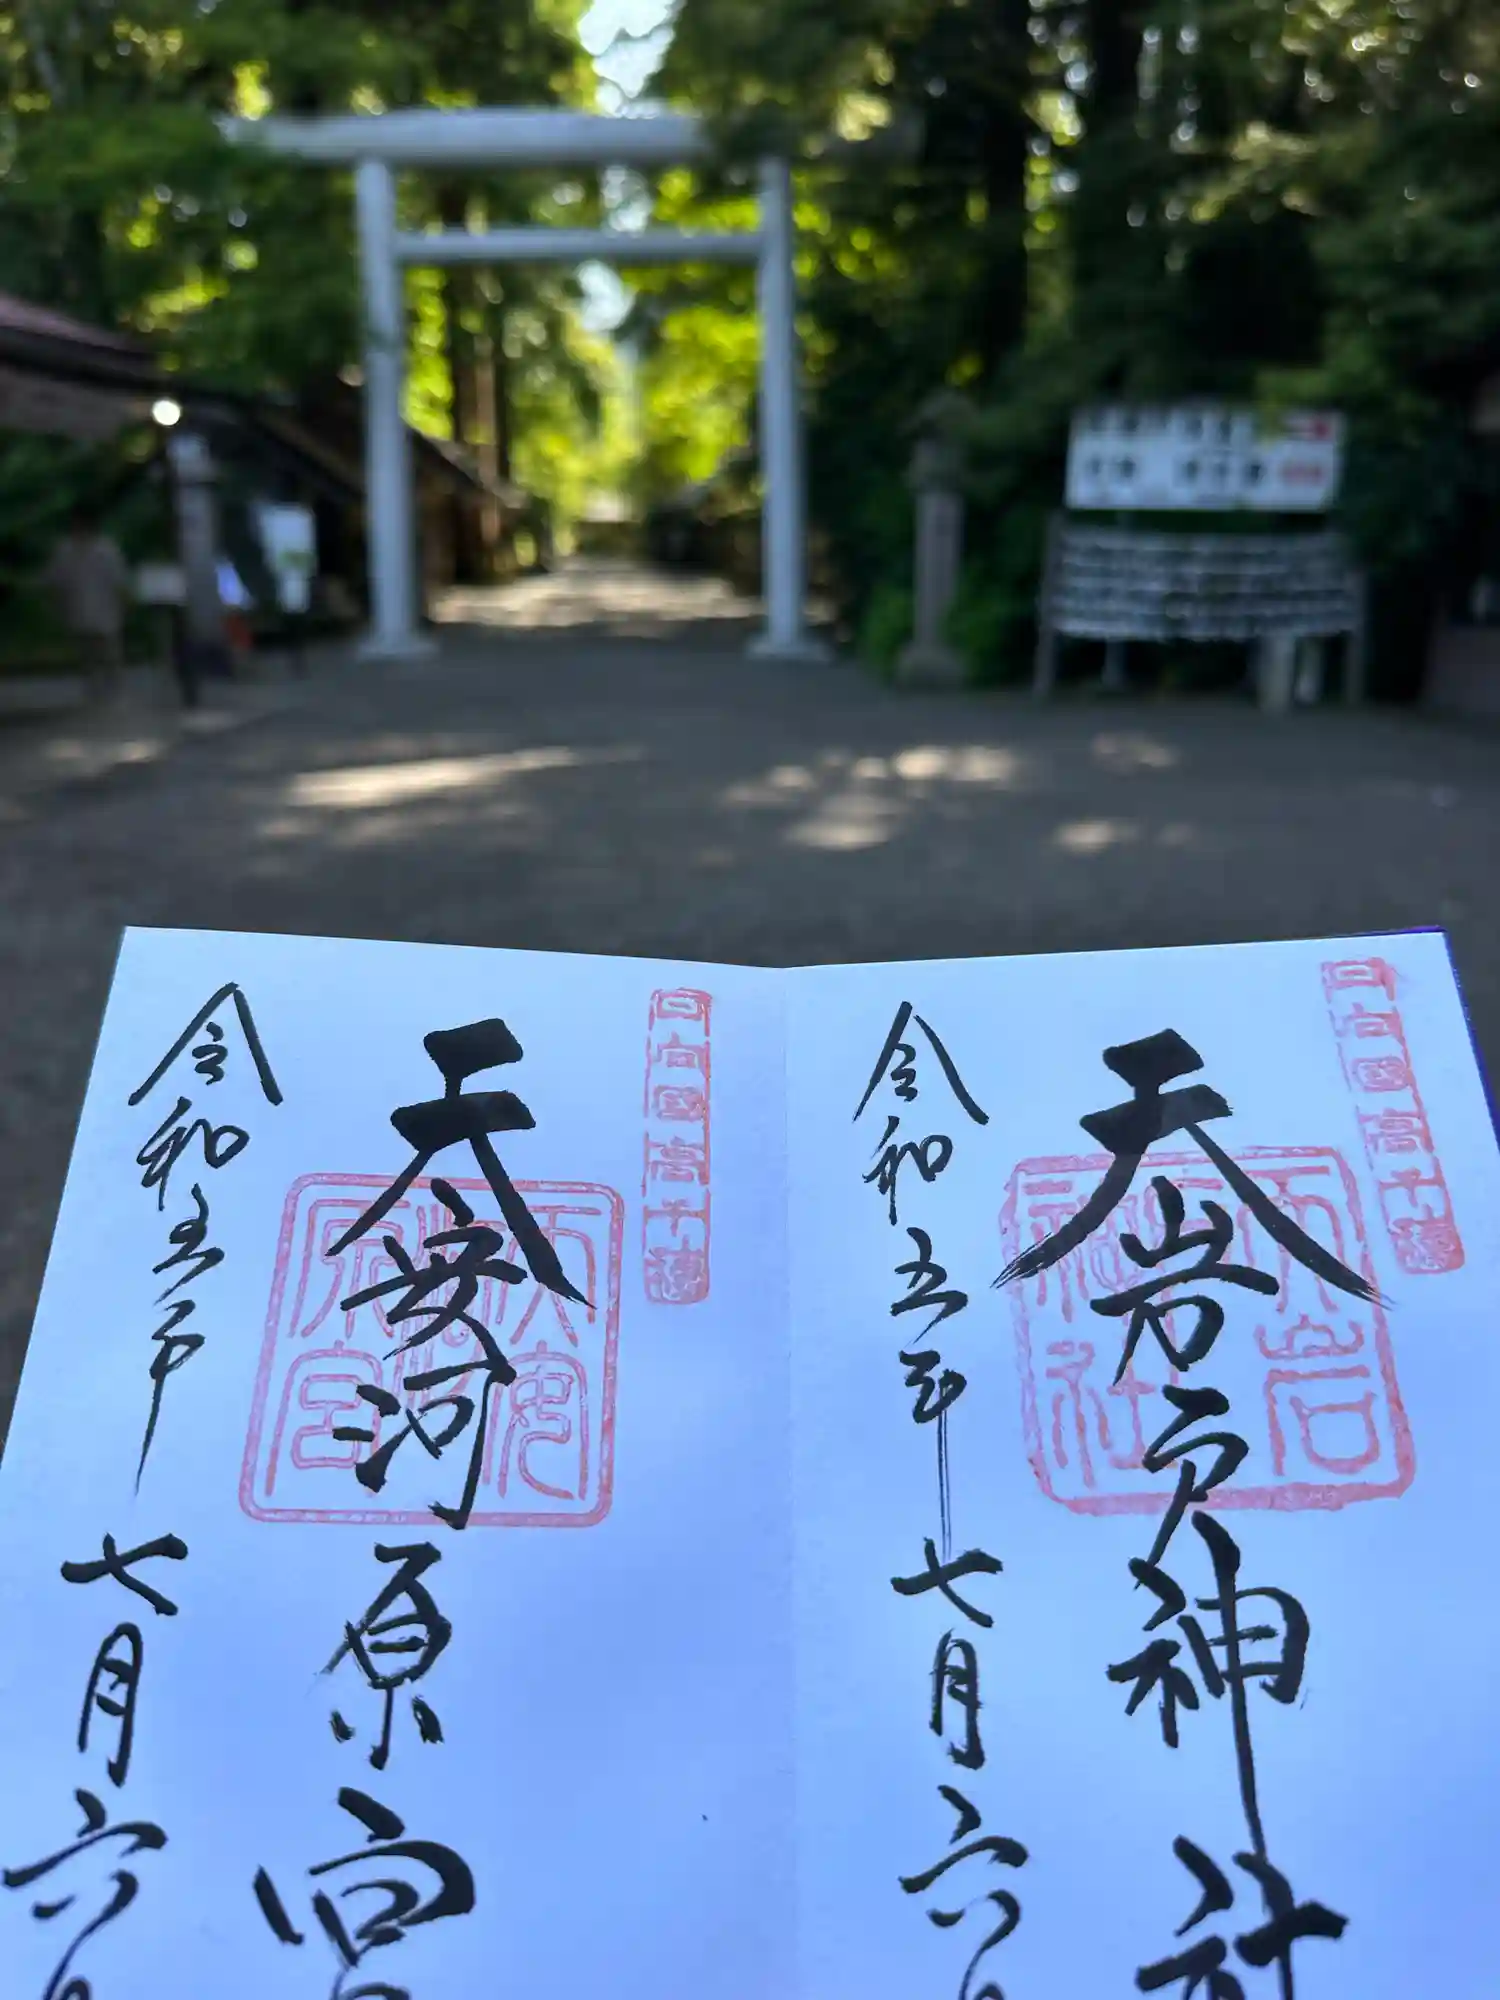 日向國高千穂
天岩戸神社
天岩戸神社
令和五年七月六日
日向國高千穂
天安河原宮
天安河原宮
令和五年七月六日